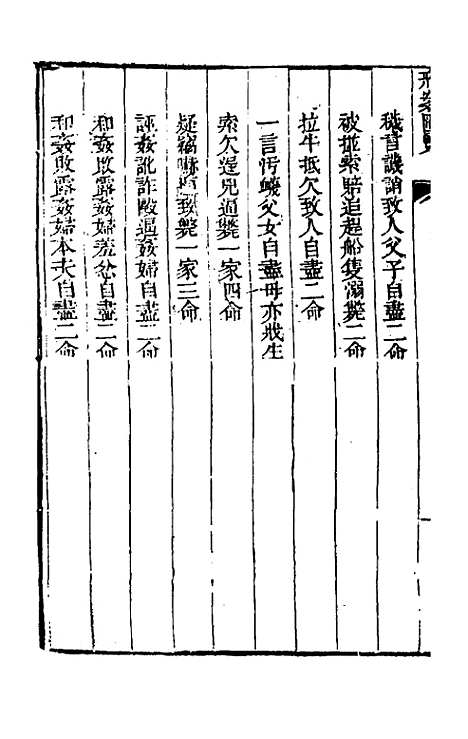 穢言譏誚致人父子自盡二命
被撞索賠追趕船隻溺斃二命
拉牛抵欠致人自盡二命
一言污衊父女自盡母亦戕生
索欠逞兇逼斃一家四命
疑竊嚇逼致斃一家三命
誣姦訛詐毆逼姦婦自盡二命
和姦敗露姦婦羞忿自盡二命
和姦敗露姦婦本夫自盡二命